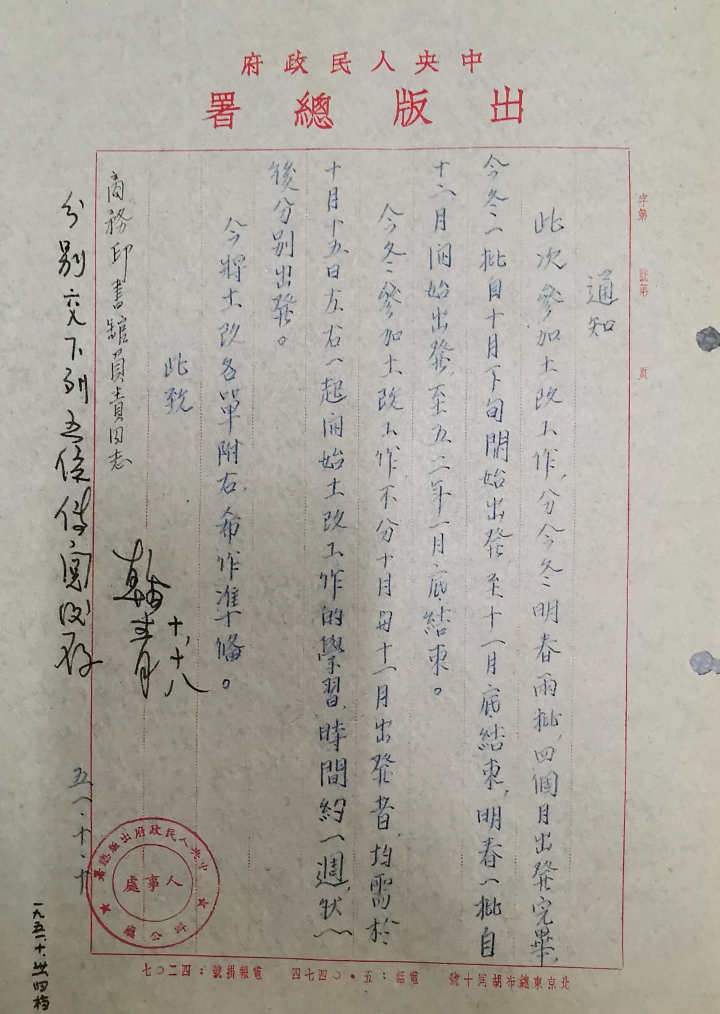 中央人民政府
出版總署
字第 號第 頁
通知
此次參加土改工作，分今冬明春兩批，四個月出發完畢，
今冬一批自十月下旬開始出發，至十一月底結束，明春一批自
十二月開始出發，至五二年一月底結束。
今冬參加土改工作不分十月毋十一月出發者，均需於
十月十五日左右一起開始土改工作的學習，時間約一週，狀
後分别出發。
今將土改名單附右，希作準備。
此致
商務印書館負責同志
韓
十、十八
分别交下列五位傳閱後存
五一·十·十
中央人民政府出版總署
人事處
辦公廳
一九五一、十、廿四档
北京東總布胡同十號 電話：五·〇四七四 電報掛號：四二〇七